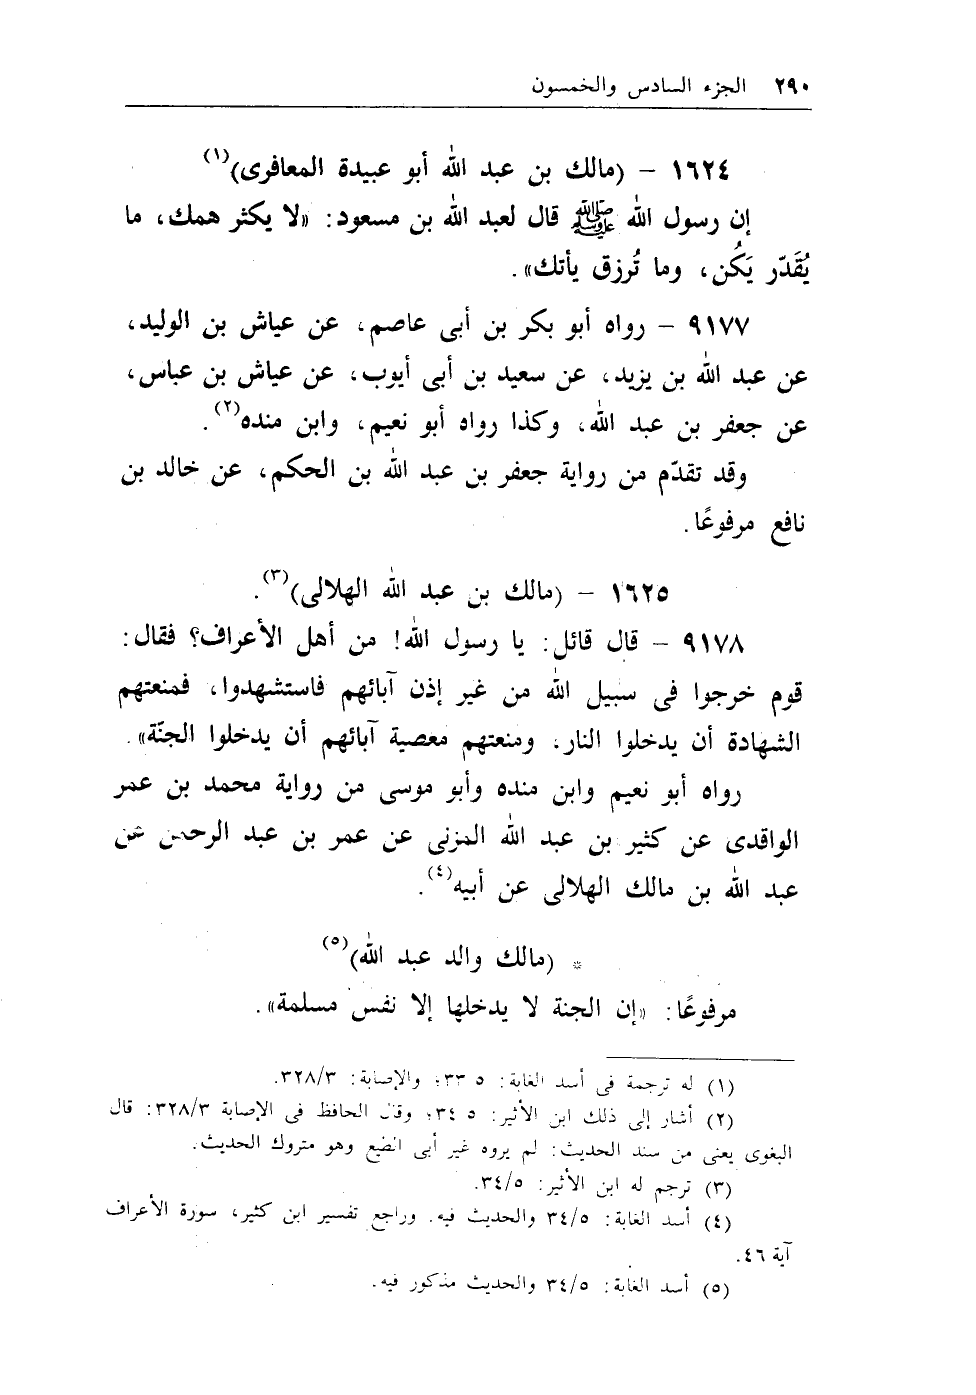 ٢٩٠ الجزء السادس والخمسون
١٦٢٤ - (مالك بن عبد الله أبو عبيدة المعافرى)(١)
إن رسول الله ﷺ قال لعبد الله بن مسعود: «لا يكثر همك، ما
يُقَدّر يَكُن، وما تُرزق يأتك».
٩١٧٧ - رواه أبو بكر بن أبى عاصم، عن عياش بن الوليد،
عن عبد الله بن يزيد، عن سعيد بن أبى أيوب، عن عياش بن عباس،
عن جعفر بن عبد الله، وكذا رواه أبو نعيم، وابن منده(٢).
وقد تقدّم من رواية جعفر بن عبد الله بن الحكم، عن خالد بن
نافع مرفوعًا.
١٦٢٥ - (مالك بن عبد الله الهلالى)(٣).
٩١٧٨ - قال قائل: يا رسول الله! من أهل الأعراف؟ فقال:
قوم خرجوا فى سبيل الله من غير إذن آبائهم فاستشهدوا، فمنعتهم
الشهادة أن يدخلوا النار، ومنعتهم معصية آبائهم أن يدخلوا الجنّة».
رواه أبو نعيم وابن منده وأبو موسى من رواية محمد بن عمر
الواقدى عن كثير بن عبد الله المزنى عن عمر بن عبد الرحمن عن
عبد الله بن مالك الهلالى عن أبيه(٤).
* (مالك والد عبد الله)(٥)
مرفوعًا: «إن الجنة لا يدخلها إلا نفس مسلمة».
(١) له ترجمة فى أسد الغابة: ٥ ٣٣؛ والإصابة: ٣٢٨/٣.
(٢) أشار إلى ذلك ابن الأثير: ٥ ٣٤؛ وقال الحافظ فى الإصابة ٣٢٨/٣: قال
البغوى يعنى من سند الحديث: لم يروه غير أبى الضيع وهو متروك الحديث.
(٣) ترجم له ابن الأثير: ٣٤/٥.
(٤) أسد الغابة: ٣٤/٥ والحديث فيه. وراجع تفسير ابن كثير، سورة الأعراف
آية ٤٦.
(٥) أسد الغابة: ٣٤/٥ والحديث مذكور فيه.